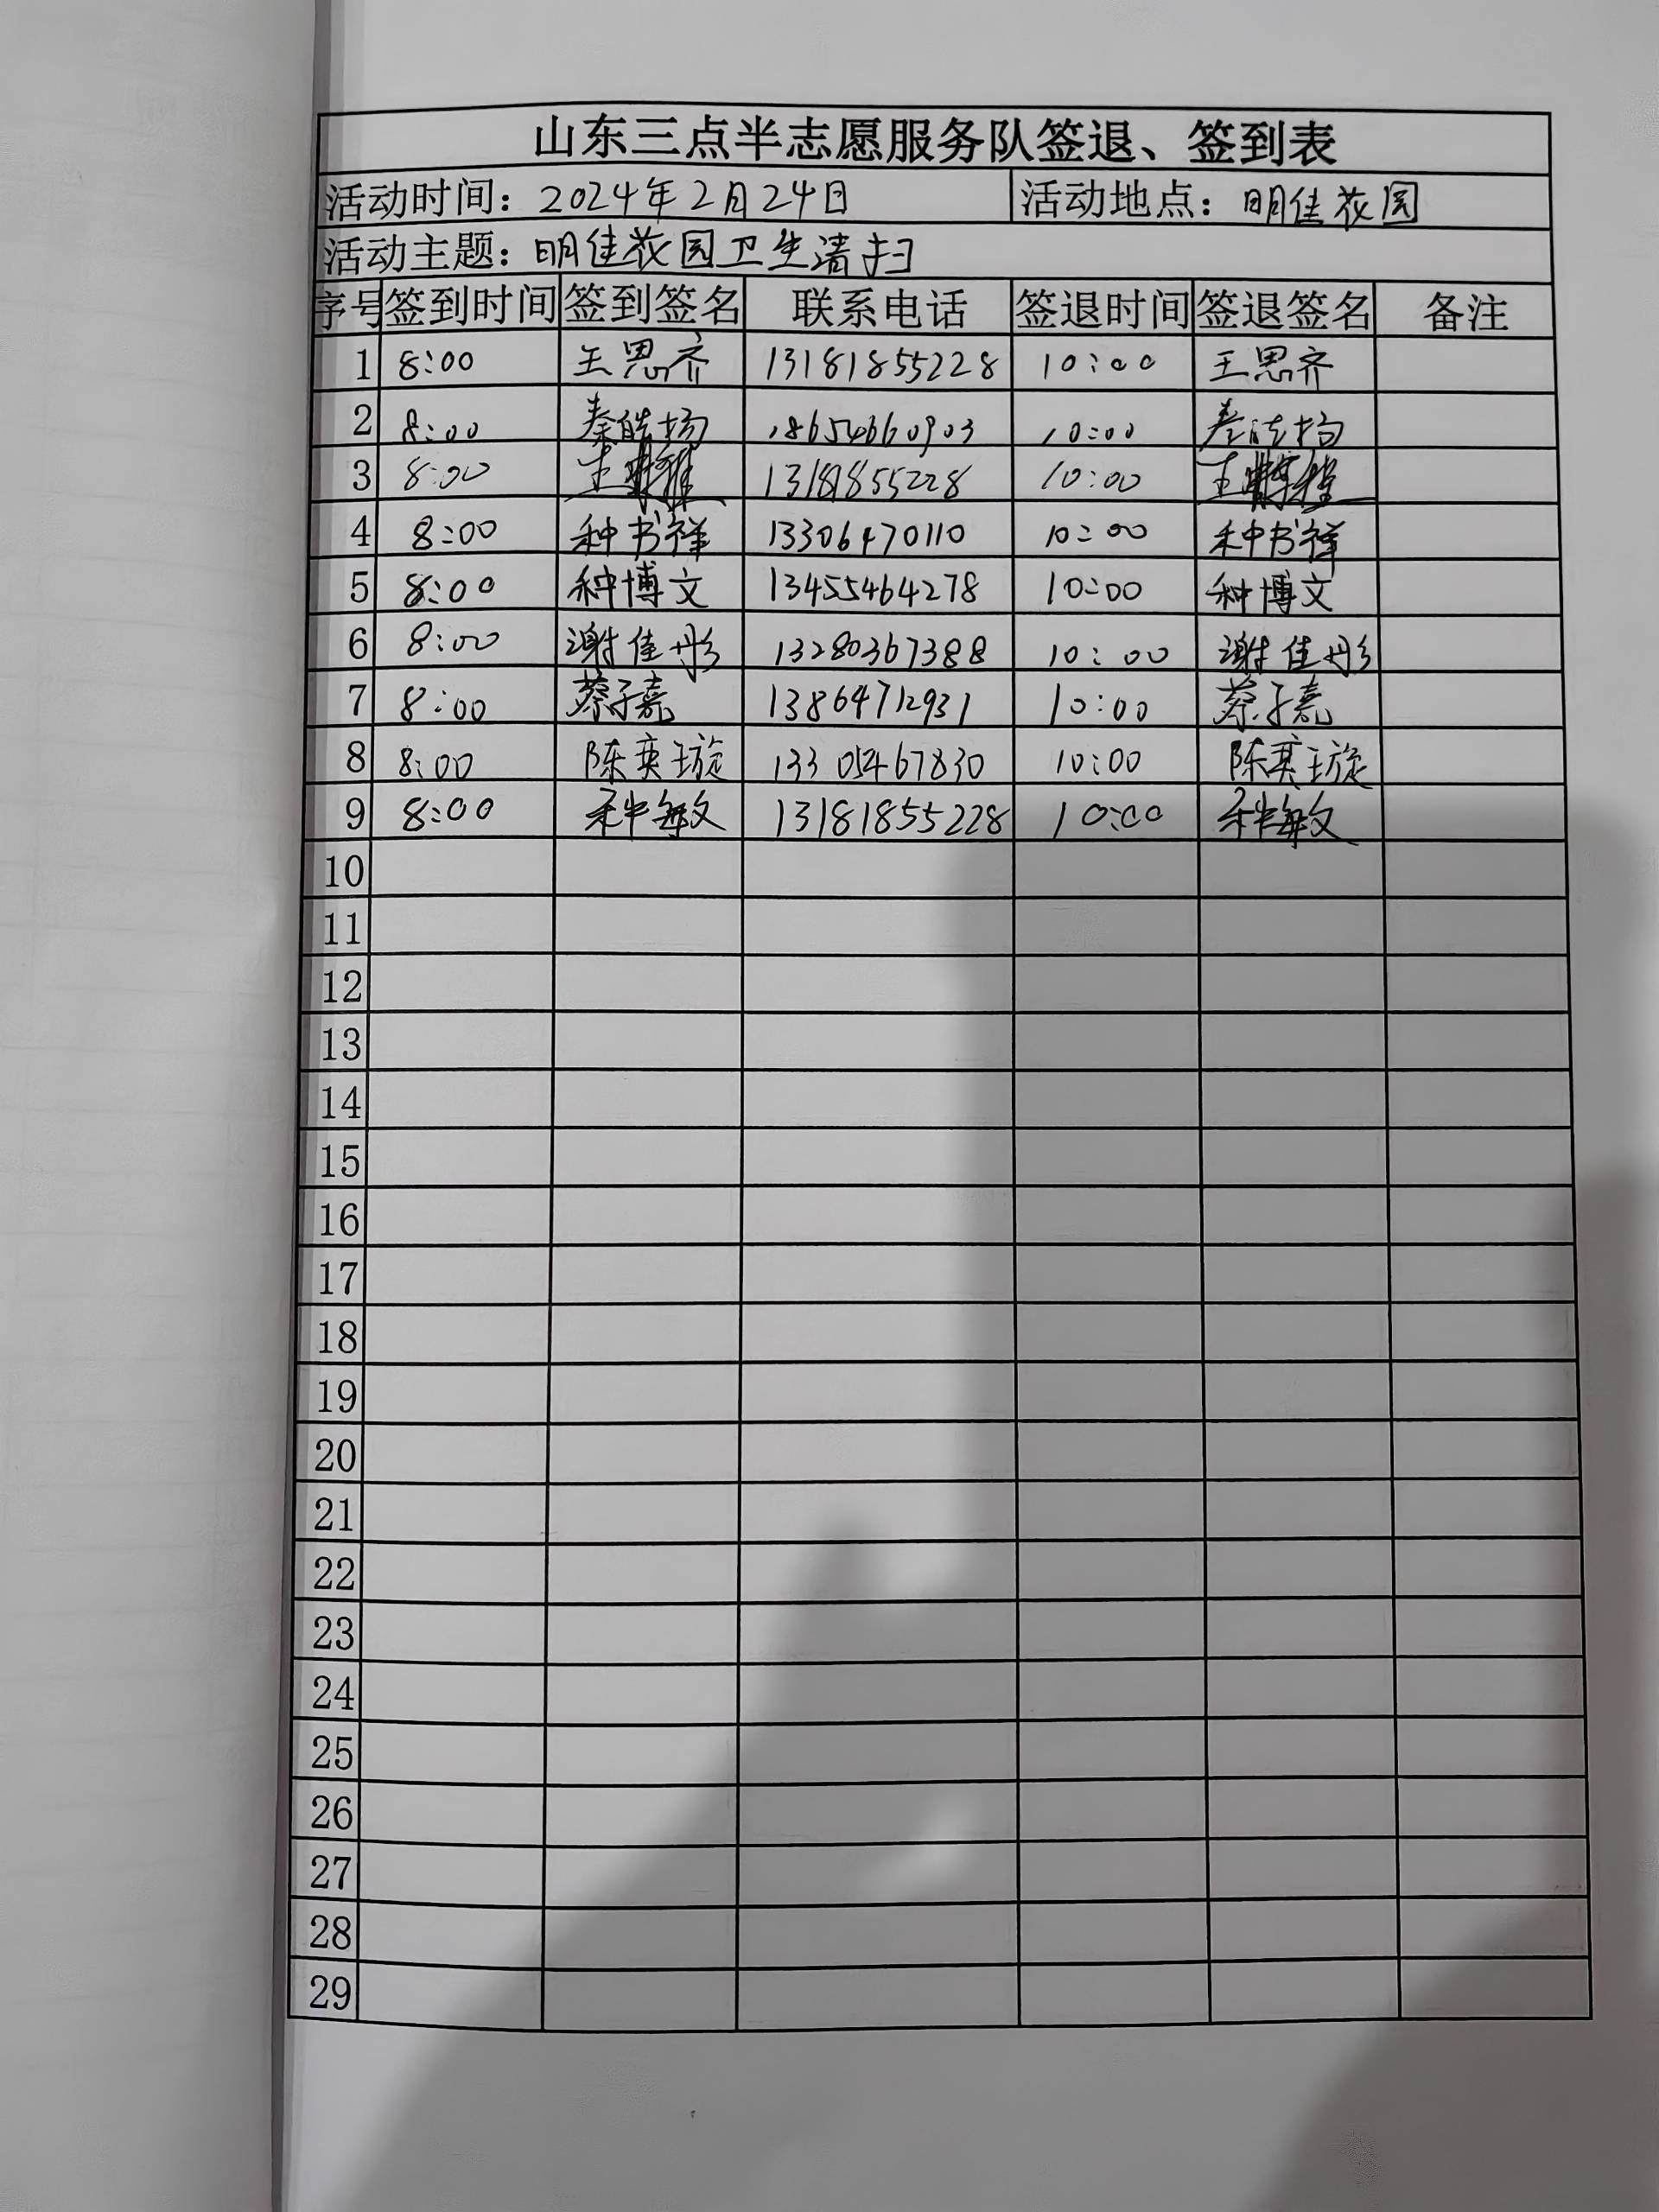 山东三点半志愿服务队签退、签到表
活动时间：2024年2月24日 活动地点：明佳花园
活动主题：明佳花园卫生清扫
序号 签到时间 签到签名 联系电话 签退时间 签退签名 备注
1 8:00 王思齐 13181855228 10:00 王思齐
2 8:00 秦皓扬 18654660903 10:00 秦皓扬
3 8:00 王 13181855228 10:00 王
4 8:00 种书祥 13306470110 10:00 种书祥
5 8:00 种博文 13455464278 10:00 种博文
6 8:00 谢佳彤 13280367388 10:00 谢佳彤
7 8:00 蔡子嘉 13864712931 10:00 蔡子嘉
8 8:00 陈奕璇 13305467830 10:00 陈奕璇
9 8:00 种敏 13181855228 10:00 种敏
10
11
12
13
14
15
16
17
18
19
20
21
22
23
24
25
26
27
28
29